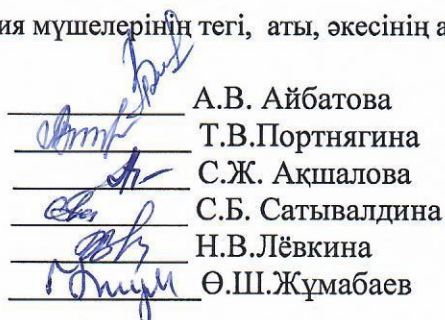 ия мүшелерінің тегі, аты, әкесінің а
А.В. Айбатова
Т.В.Портнягина
С.Ж. Ақшалова
С.Б. Сатывалдина
Н.В.Лёвкина
Ө.Ш.Жұмабаев